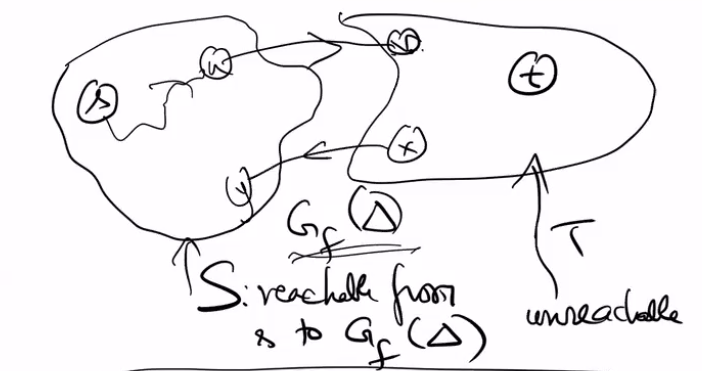 u
v
s
t
x
y
G_f (Δ)
T
S: reachable from
s to G_f (Δ)
unreachable